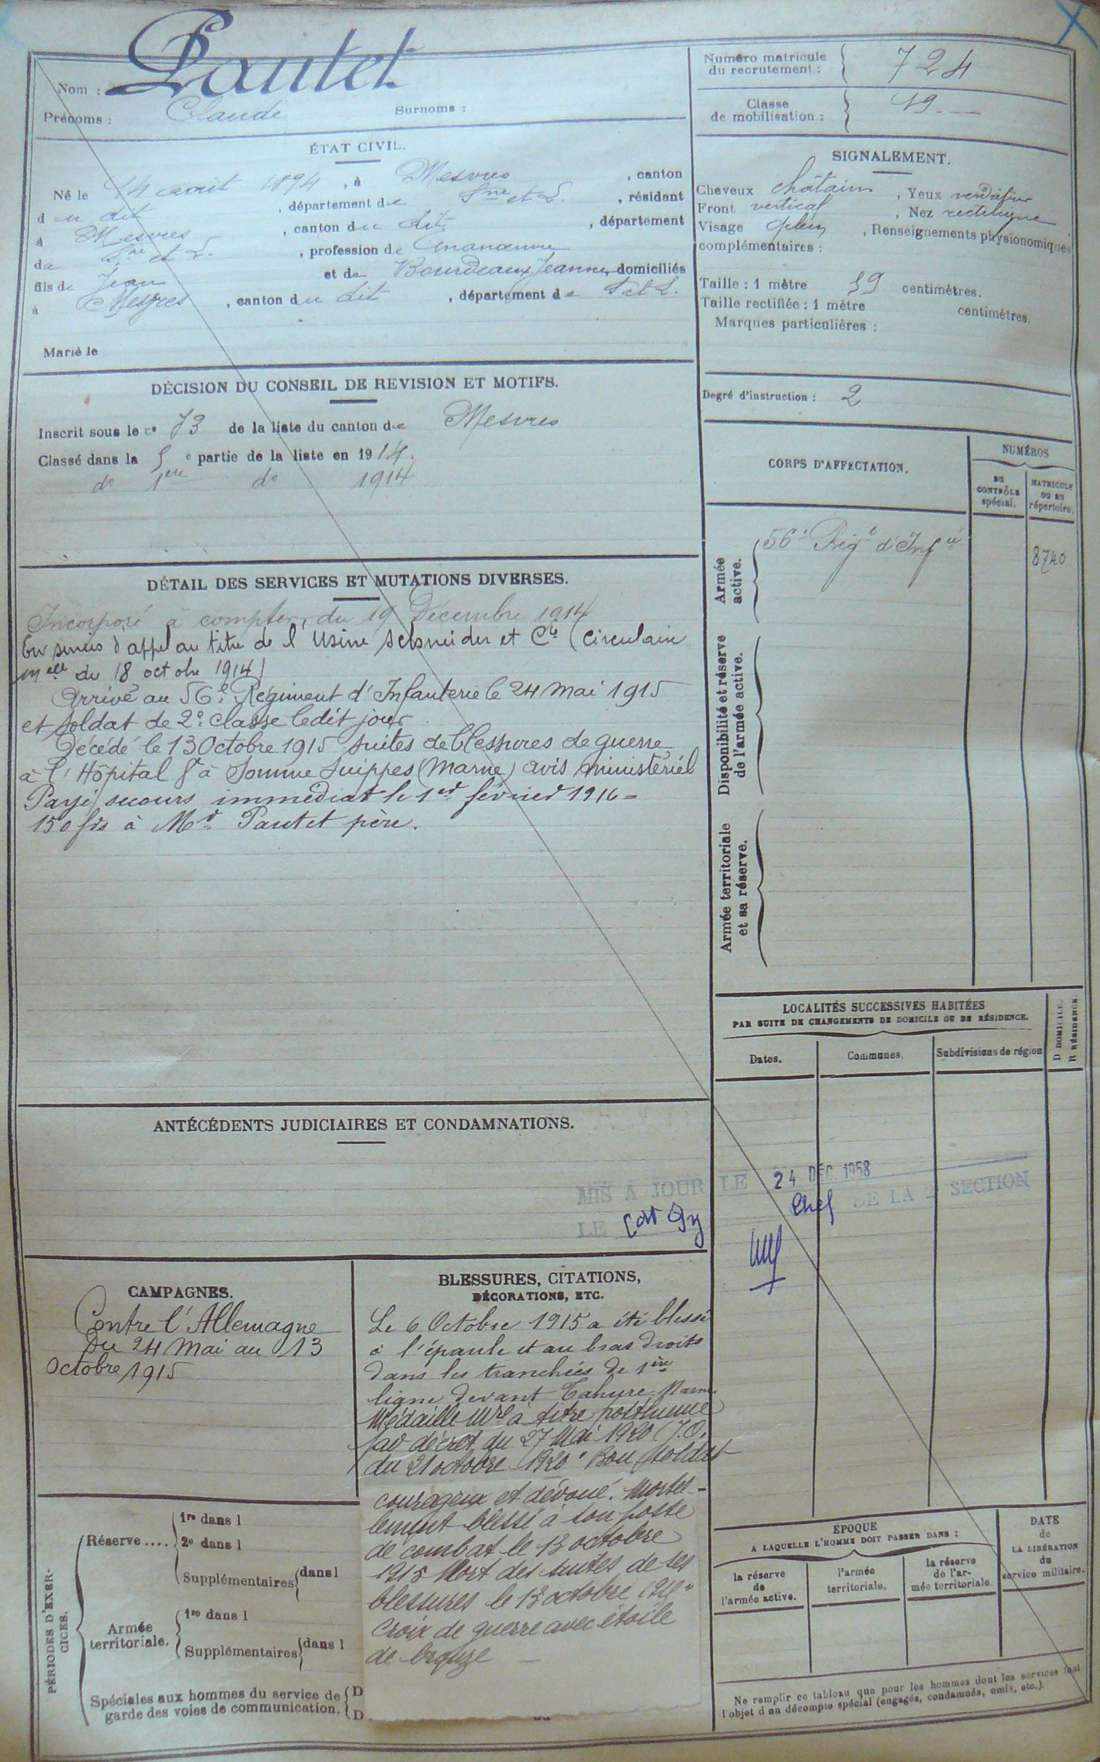 Nom : Pautet
Prénoms : Claude Surnoms :
ÉTAT CIVIL.
Né le 14 août 1894, à Mesvres, canton
du dit, département de Sne et L., résidant
à Mesvres, canton du dit, département
de Sne et L., profession de manœuvre
fils de Jean et de Bourdeaux Jeanne, domiciliés
à Mesvres, canton du dit, département de S et L.
Marié le
Numéro matricule du recrutement : 724
Classe de mobilisation : 19
SIGNALEMENT.
Cheveux châtain, Yeux
Front vertical, Nez rectiligne
Visage plein, Renseignements physionomiques
complémentaires :
Taille : 1 mètre 59 centimètres.
Taille rectifiée : 1 mètre centimètres.
Marques particulières :
Degré d'instruction : 2
DÉCISION DU CONSEIL DE REVISION ET MOTIFS.
Inscrit sous le no 73 de la liste du canton de Mesvres
Classé dans la 5e partie de la liste en 1914.
do 1ère do 1914
CORPS D'AFFECTATION.
NUMÉROS
AU CONTRÔLE spécial.
MATRICULE OU AU répertoire.
Armée active.
56e Régt d'Infie 8740
Disponibilité et réserve de l'armée active.
Armée territoriale et sa réserve.
DÉTAIL DES SERVICES ET MUTATIONS DIVERSES.
Incorporé à compter du 19 Décembre 1914
En sursis d'appel au titre de l'Usine Schneider et Cie (circulaire
mlle du 18 octobre 1914)
Arrivé au 56e Régiment d'Infanterie le 24 Mai 1915
et soldat de 2e classe ledit jour
Décédé le 13 Octobre 1915 suites de blessures de guerre
à l'Hôpital à Somme Suippes (Marne) avis ministériel
Payé secours immédiat le 1er février 1916 =
150 frs à Mr Pautet père.
LOCALITÉS SUCCESSIVES HABITÉES
PAR SUITE DE CHANGEMENTS DE DOMICILE OU DE RÉSIDENCE.
Dates. Communes. Subdivisions de région
D DOMICILE.
R RÉSIDENCE.
ANTÉCÉDENTS JUDICIAIRES ET CONDAMNATIONS.
MIS A JOUR LE 24 DEC. 1958
LE Chef DE LA SECTION
CAMPAGNES.
Contre l'Allemagne
Du 24 Mai au 13
Octobre 1915
BLESSURES, CITATIONS,
DÉCORATIONS, ETC.
Le 6 Octobre 1915 a été blessé
à l'épaule et au bras droits
dans les tranchées de 1ère
ligne devant Tahure Marne
Médaille Mre à titre posthume
par décret du 27 Mai 1920 (J.O.
du 21 octobre 1920 "Bon soldat
courageux et dévoué. Mortel-
lement blessé à son poste
de combat le 13 octobre
1915 Mort des suites de ses
blessures le 13 octobre
Croix de guerre avec étoile
de bronze
PÉRIODES D'EXERCICES.
Réserve .... 1re dans l
2e dans l
Supplémentaires dans l
Armée territoriale. 1re dans l
Supplémentaires dans l
Spéciales aux hommes du service de D
garde des voies de communication. D
ÉPOQUE
A LAQUELLE L'HOMME DOIT PASSER DANS :
la réserve de l'armée active.
l'armée territoriale.
la réserve de l'armée territoriale.
DATE de LA LIBÉRATION du service militaire.
Ne remplir ce tableau que pour les hommes dont les services font
l'objet d'un décompte spécial (engagés, condamnés, omis, etc.).